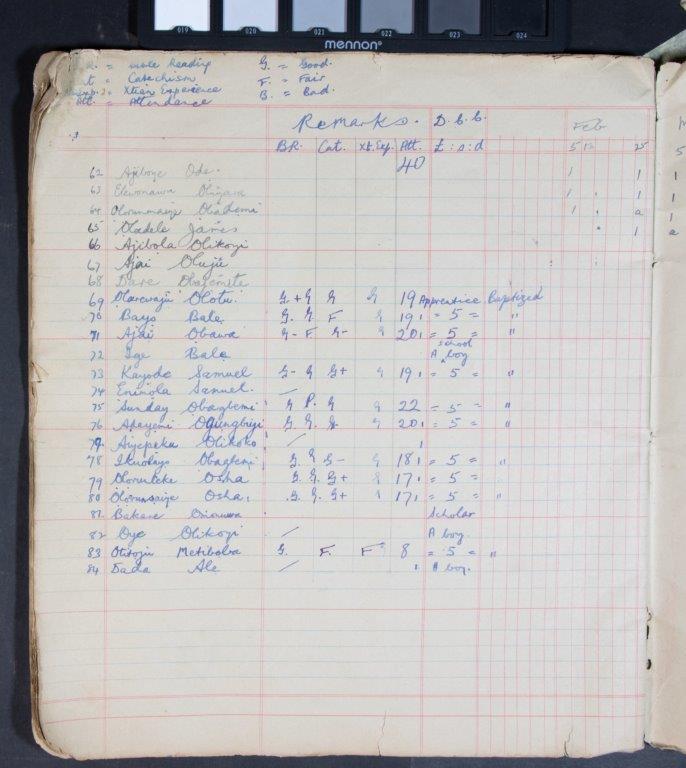 019 020 021 022 023 024
mennon
B.R. = Bible Reading G. = Good.
Cat. = Catechism F. = Fair
Xt.Exp. = Xtian Experience B. = Bad.
Att. = Attendance
Remarks. D. C. C. Feb
B.R. Cat. Xt.Exp. Att. £ : s : d 5 12 25
40
62 Ajiboye Ode. 1 1
63 1 1
64 1 a
65 Oladele James 1
66 Ajibola Olikoyi
67 Ajai Oluju
68 Dare
69 Olarewaju Olotu. G.+ G G G 19 Apprentice Baptized
70 Bayo Bale G. G F G 19 = 5 = "
71 Ajai Obawa G- F. G- G 20 = 5 = "
72 Ige Bale A school boy
73 Kayode Samuel G- G G+ G 19 = 5 = "
74 Eniola Samuel.
75 Sunday Obagbemi G P. G G 22 = 5 =
76 Ogungbuyi G. G. G G 20 = 5 = "
77 Olikoko
78 Ikuodayo Obagbemi G. G G- G 18 = 5 = "
79 Oloruntoke Osha G. G. G+ G 17 = 5 = "
80 Olorunsaiye Osha. G. G. G+ 17 = 5 = "
81 Bakare Scholar
82 Oye Olikoyi A boy.
83 Otitoju Metibola G. F. F 8 = 5 = "
84 Dada Ale A boy.